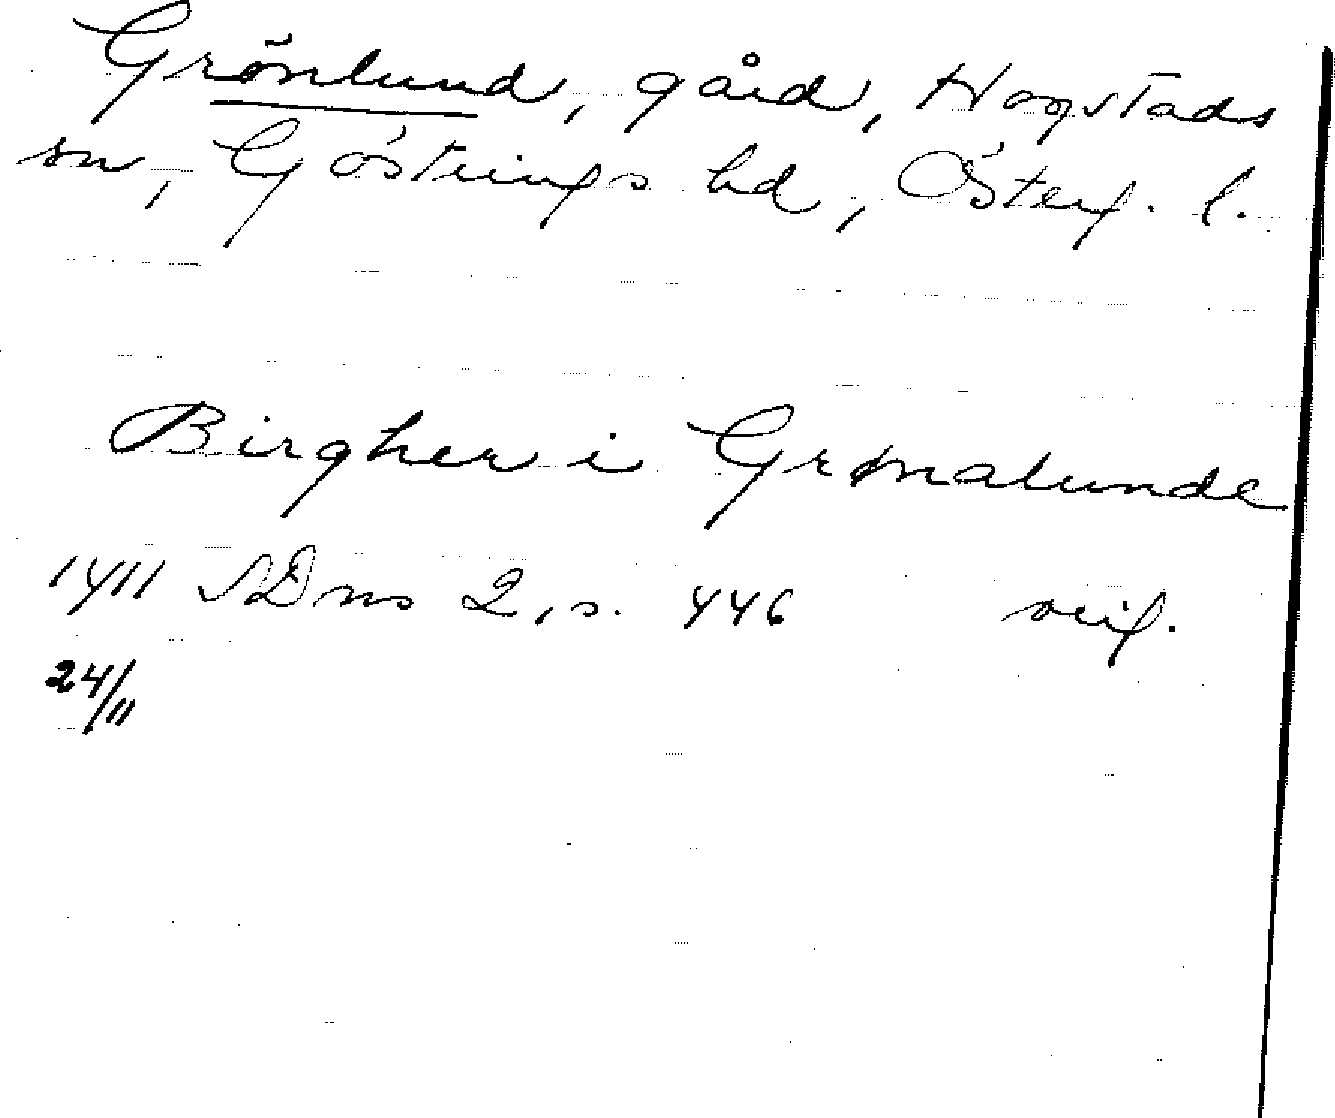 Grönlund, gård, Hogstads
sn, Göstrings hd, Österg. l.
Birgher i Grønalunde
1411 SDns 2, s. 446 orig.
24/11